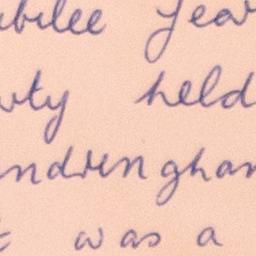 ubilee Year
rty held
ndringham
t was a